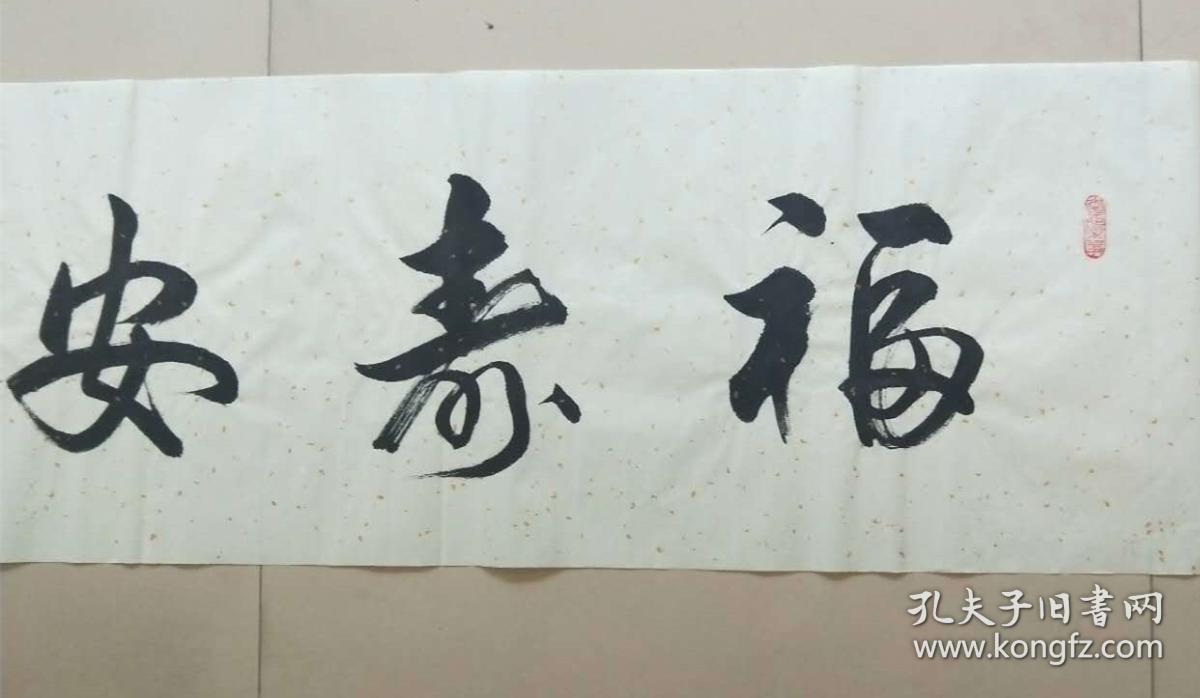 福寿安
孔夫子旧書网
www.kongfz.com